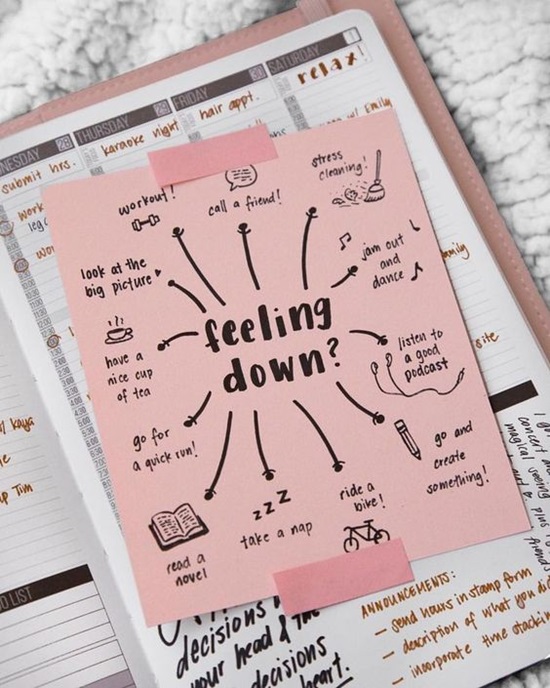 THURSDAY 29
FRIDAY 30
SATURDAY
submit hrs.
karaoke night
hair appt.
relax!
w/ Emily
stress
cleaning!
workout!
call a friend!
jam out
and
dance
look at the
big picture
feeling
down?
have a
nice cup
of tea
listen to
a good
podcast
go for
a quick run!
go and
create
something!
ride a
bike!
zzz
take a nap
read a
novel
family
w/ Kaya
ANNOUNCEMENTS:
- send hours in stamp form
- description of what you
- incorporate time
decisions
your head & the
decisions
heart.